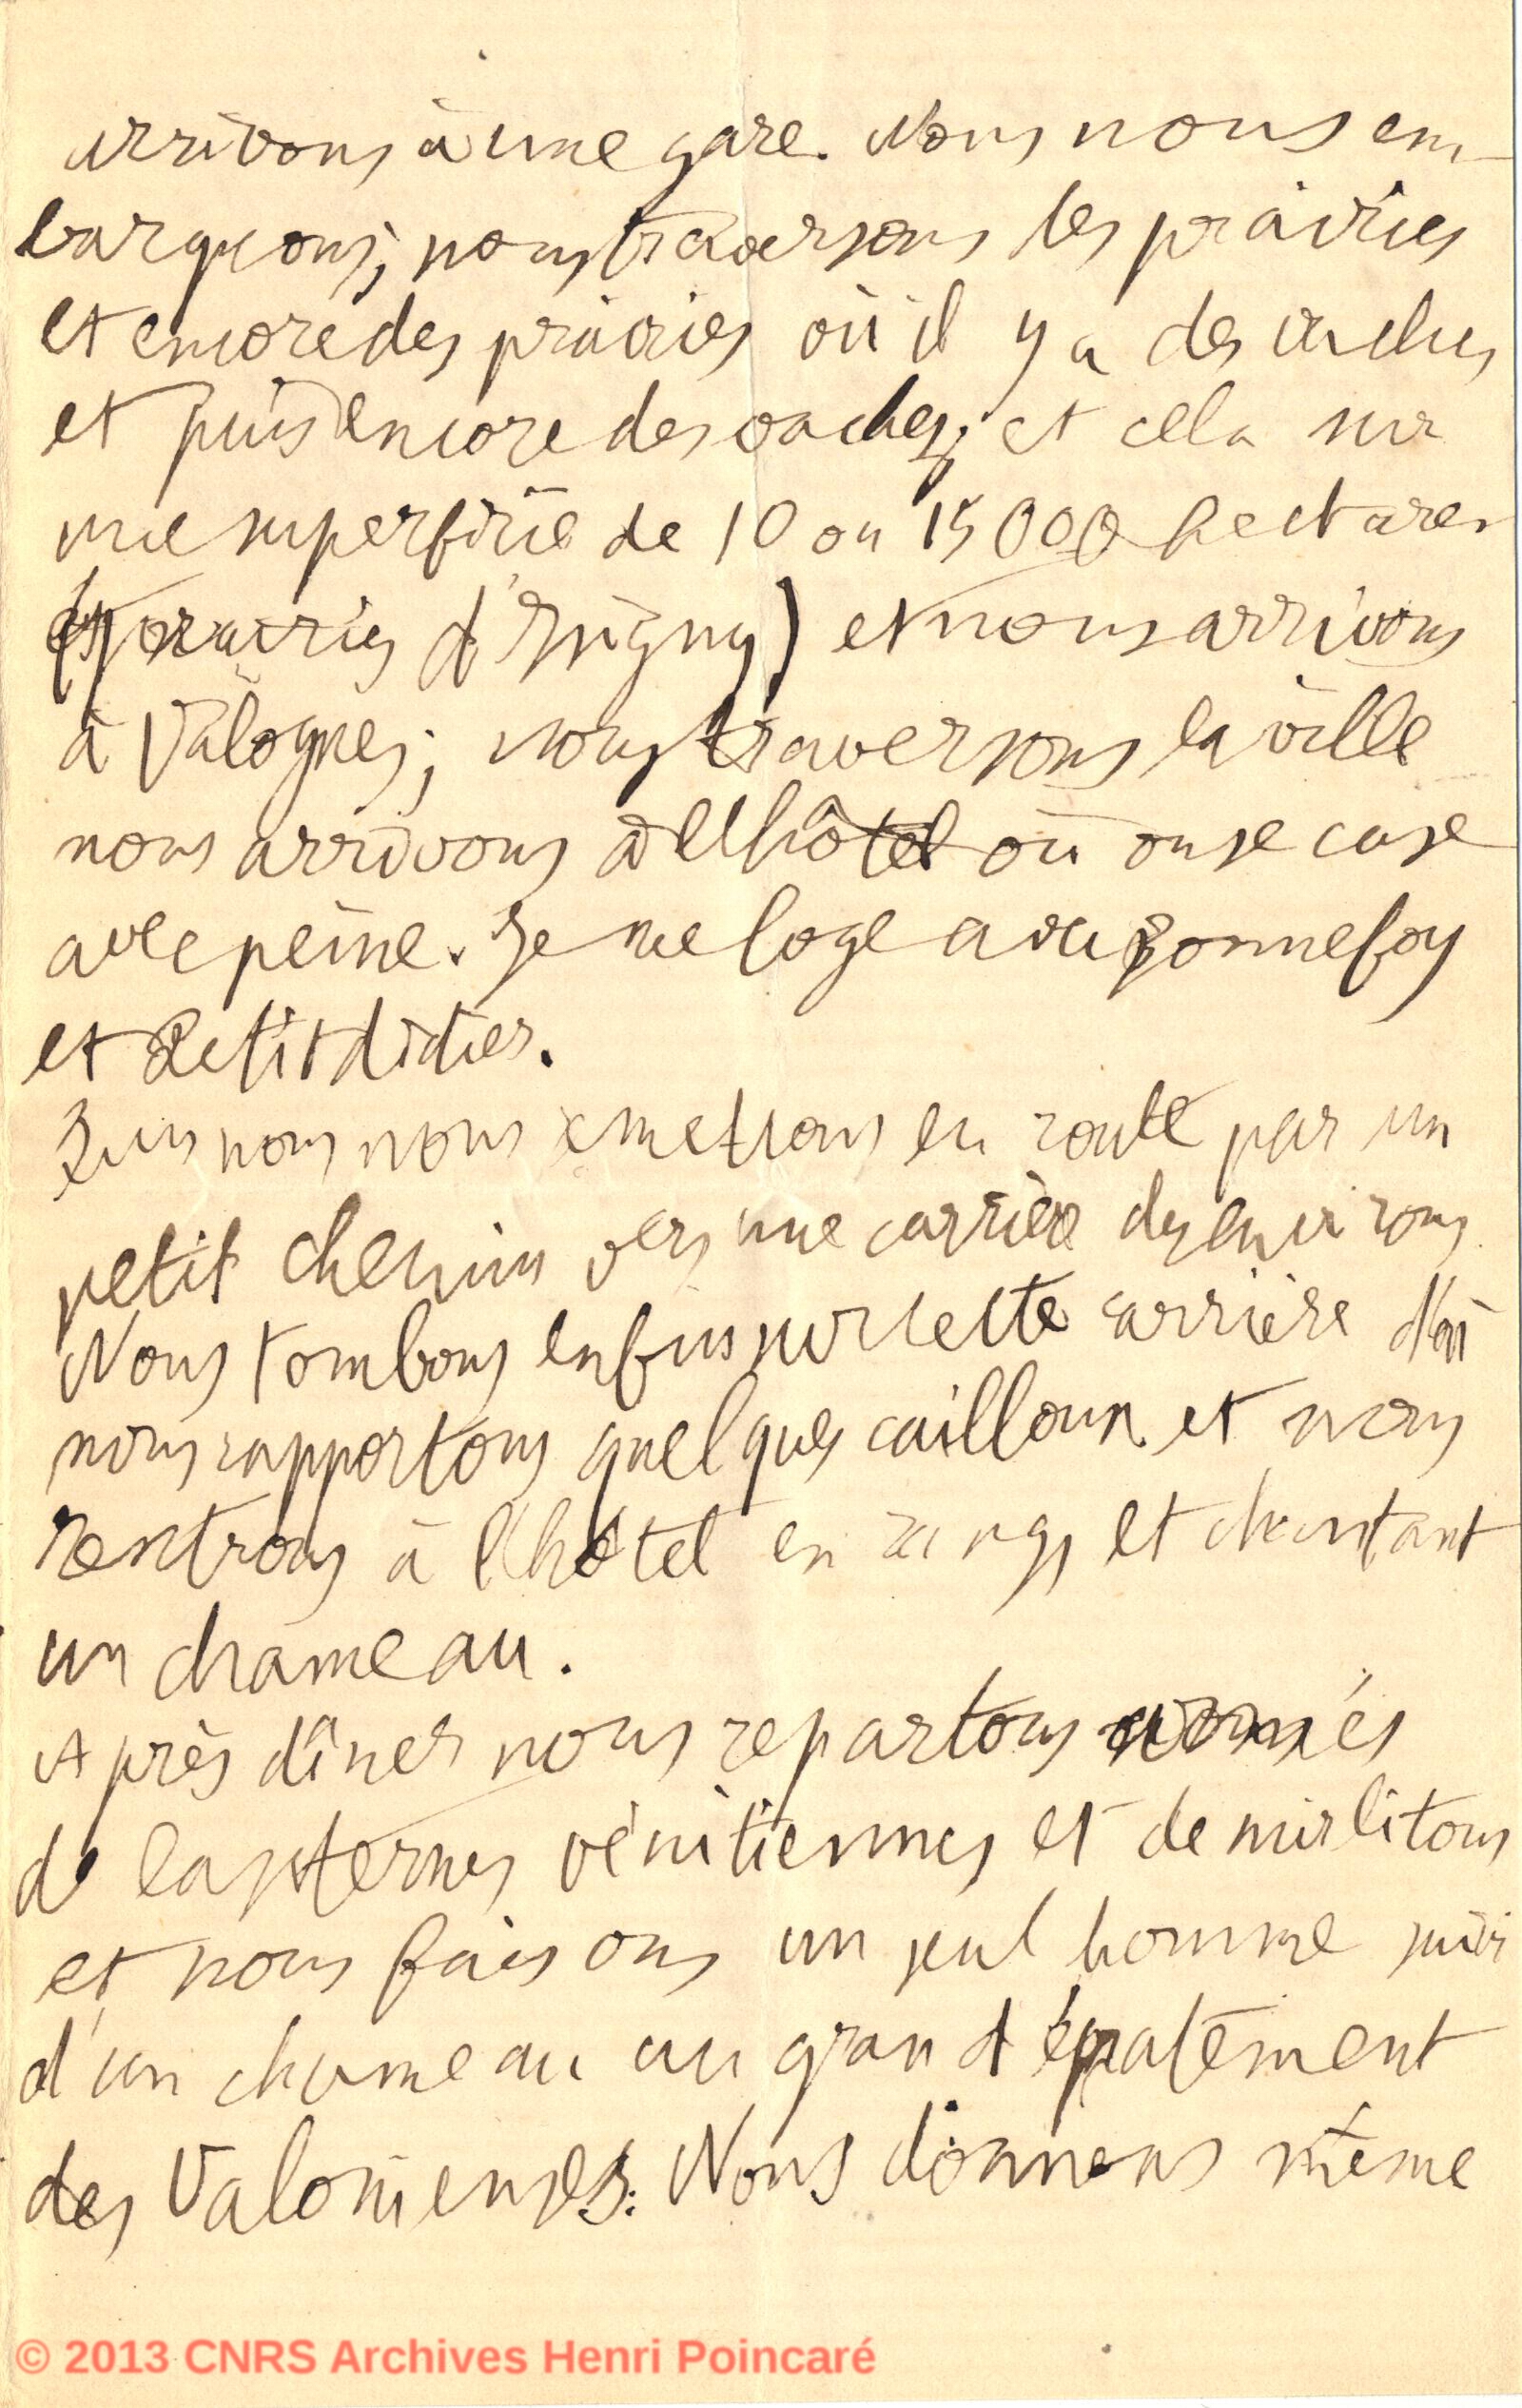 arrivons à une gare. Nous nous em-
barquons; nous traversons les prairies
et encore des prairies où il y a des vaches
et puis encore des vaches; et cela sur
une superficie de 10 ou 15000 hectares
(prairies d'Isigny) et nous arrivons
à Valognes; nous traversons la ville
nous arrivons à l'hôtel où on se case
avec peine. Je me loge avec Bonnefoy
et Petitdidier.
Puis nous nous mettons en route par un
petit chemin vers une carrière des environs.
Nous tombons enfin sur cette carrière d'où
nous rapportons quelques cailloux et nous
rentrons à l'hôtel en rangs et chantant
un chameau.
Après dîner nous repartons armés
de lanternes vénitiennes et de mirlitons
et nous faisons un seul homme suivi
d'un chameau au grand épatement
des Valoniensez. Nous donnons même
© 2013 CNRS Archives Henri Poincaré